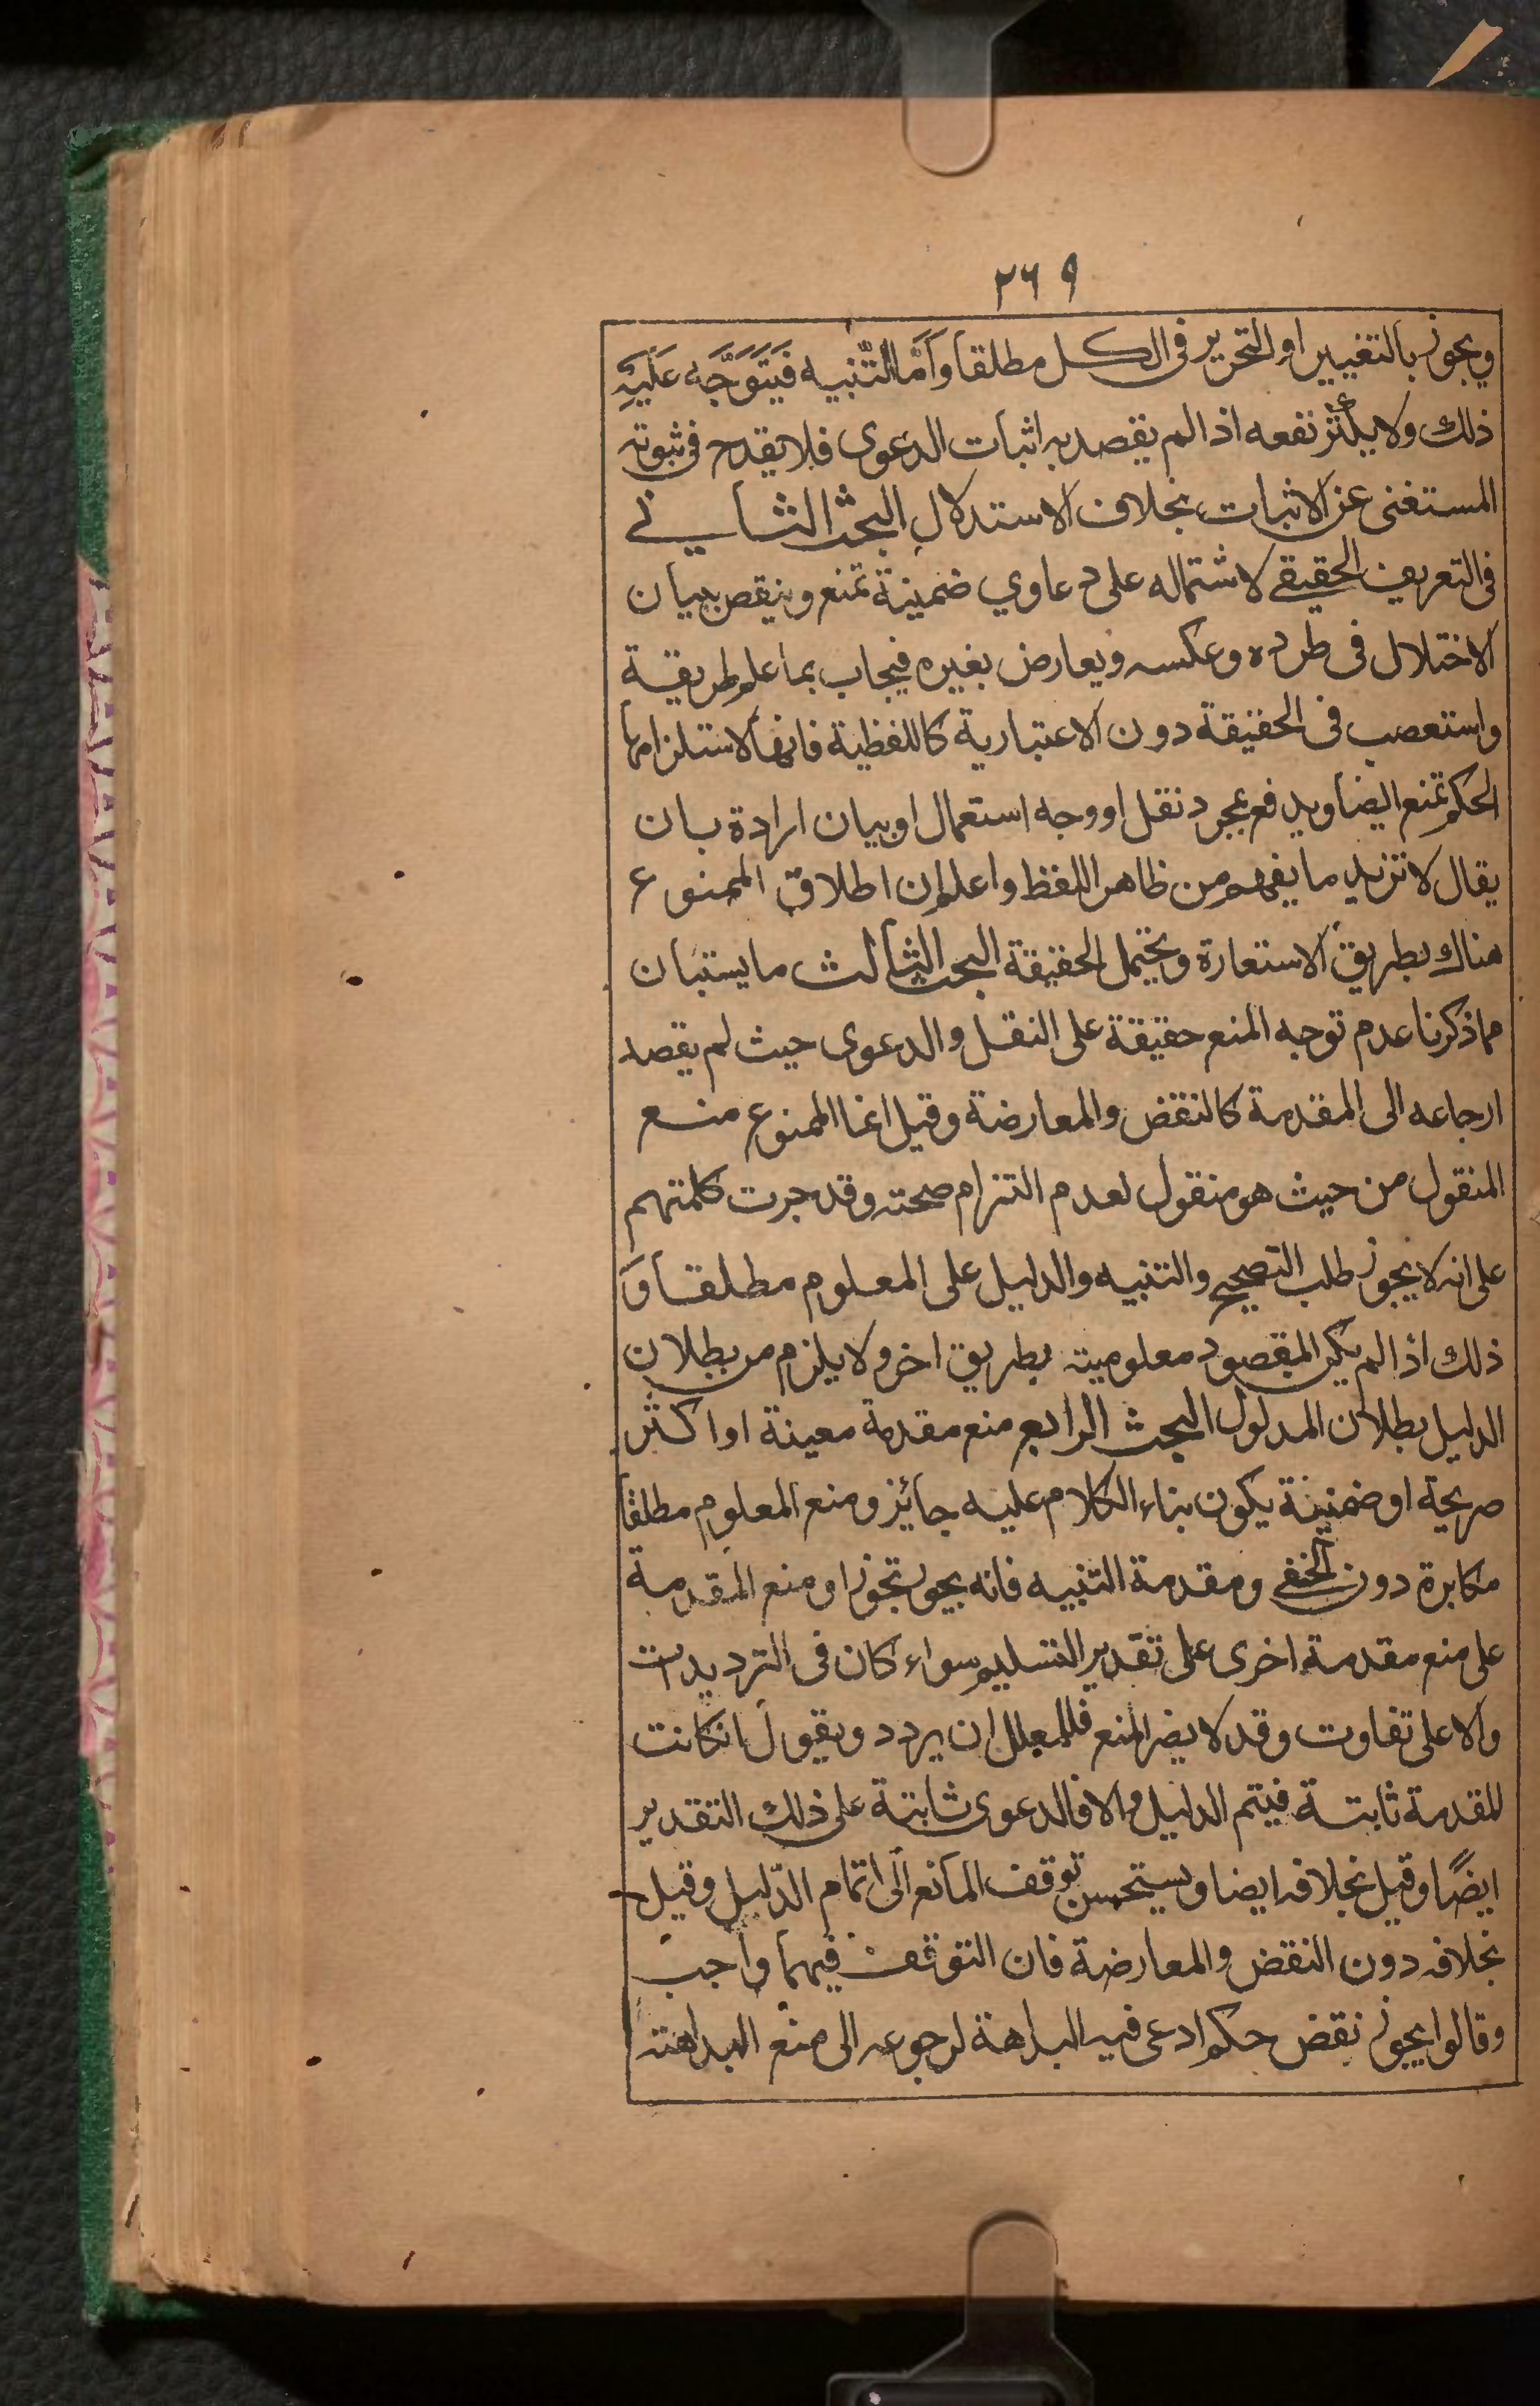 ٢٦٩
ويجوز بالتغيير او التحرير فى الكل مطلقا وَاَمَّا التَّنبيه فَيَتَوَجَّه عَلَيْهِ
ذلك ولا يكثر نفعه اذا لم يقصد به اثبات الدعوى فلا يقدح فى ثبوته
المستغنى عن الاثبات بخلاف الاستدلال البحث الثانے
فى التعريف الحقيقے لاشتماله على دعاوي ضمينة تمنع وينقص ببيان
الاختلال فى طرده وعكسه ويعارض بغيره فيجاب بما علم طريقة
واستعصب فى الحقيقة دون الاعتبارية كاللفظية فانها لاستلزامها
الحكم تمنع ايضا ويدفع بمجرد نقل او وجه استعمال او بيان ارادة بان
يقال لا نريد ما يفهم من ظاهر اللفظ واعلم ان اطلاق الممنوع
هناك بطريق الاستعارة ويحتمل الحقيقة البحث الثالث ما يستبان
مما ذكرنا عدم توجه المنع حقيقة على النقل والدعوى حيث لم يقصد
ارجاعه الى المقدمة كالنقض والمعارضة وقيل انما الممنوع منع
المنقول من حيث هو منقول لعدم التزام صحته وقد جرت كلمتهم
على انه لا يجوز طلب التصحيح والتنبيه والدليل على المعلوم مطلقا وَ
ذلك اذا لم يكن المقصود معلوميته بطريق اخر ولا يلزم من بطلان
الدليل بطلان المدلول البحث الرابع منع مقدمة معينة او اكثر
صريحة او ضمنية يكون بناء الكلام عليه جائز ومنع المعلوم مطلقا
مكابرة دون الخفے ومقدمة التنبيه فانه يجوز تجوزا ومنع المقدمة
على منع مقدمة اخرى على تقدير التسليم سواء كان فى الترديدات
والا على تفاوت وقد لا يضر المنع فللمعلل ان يردد ويقول انكانت
المقدمة ثابتة فيتم الدليل والا فالدعوى ثابتة على ذلك التقدير
ايضًا وقيل بخلافه ايضا ويستحسن توقف المانع الى اتمام الدّليل وقيل
بخلافه دون النقض والمعارضة فان التوقف فيهما واجب
وقالوا يجوز نقض حكم ادعى فيه البداهة لرجوعه الى منع البداهته